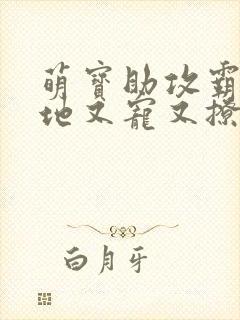 萌宝助攻霸
地又宠又撩
白月牙